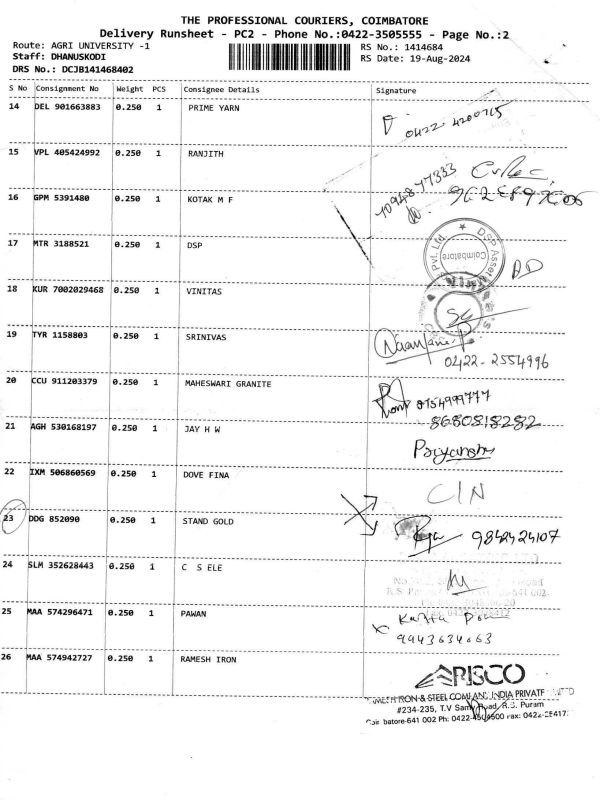 THE PROFESSIONAL COURIERS, COIMBATORE
Delivery Runsheet - PC2 - Phone No.:0422-3505555 - Page No.:2
Route: AGRI UNIVERSITY -1 RS No.: 1414684
Staff: DHANUSKODI RS Date: 19-Aug-2024
DRS No.: DCJB141468402
S No Consignment No Weight PCS Consignee Details Signature
14 DEL 901663883 0.250 1 PRIME YARN
0422 4200715
15 VPL 405424992 0.250 1 RANJITH
16 GPM 5391480 0.250 1 KOTAK M F
17 MTR 3188521 0.250 1 DSP
Pvt. Ltd ★ DSP Asset
Coimbatore
18 KUR 7002029468 0.250 1 VINITAS
19 TYR 1158803 0.250 1 SRINIVAS
0422-2554996
20 CCU 911203379 0.250 1 MAHESWARI GRANITE
8754999777
8680818282
21 AGH 530168197 0.250 1 JAY H W
Priyanshu
22 IXM 506860569 0.250 1 DOVE FINA
C/N
23 DDG 852090 0.250 1 STAND GOLD
9842424107
24 SLM 352628443 0.250 1 C S ELE
25 MAA 574296471 0.250 1 PAWAN
9943634063
26 MAA 574942727 0.250 1 RAMESH IRON
RISCO
IRON & STEEL COMPANY INDIA PRIVATE LIMITED
#234-235, T.V Samy Road, R.S. Puram
Coimbatore-641 002 Ph: 0422-4504500 Fax: 0422-